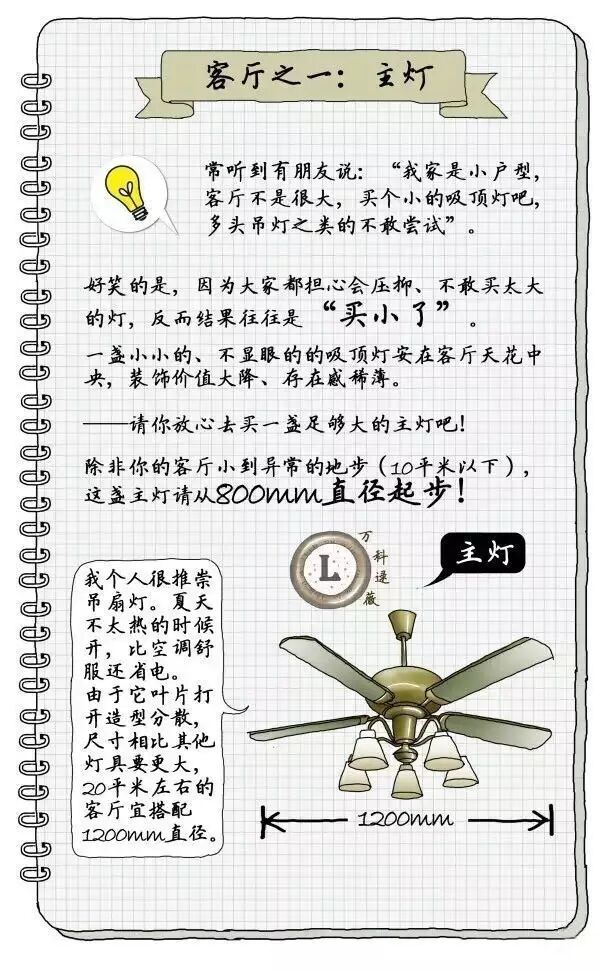 客厅之一：主灯
常听到有朋友说：“我家是小户型，
客厅不是很大，买个小的吸顶灯吧，
多头吊灯之类的不敢尝试”。
好笑的是，因为大家都担心会压抑、不敢买太大
的灯，反而结果往往是“买小了”。
一盏小小的、不显眼的的吸顶灯安在客厅天花中
央，装饰价值大降、存在感稀薄。
——请你放心去买一盏足够大的主灯吧！
除非你的客厅小到异常的地步（10平米以下），
这盏主灯请从800mm直径起步！
L
万科逯薇
主灯
我个人很推崇
吊扇灯。夏天
不太热的时候
开，比空调舒
服还省电。
由于它叶片打
开造型分散，
尺寸相比其他
灯具要更大，
20平米左右的
客厅宜搭配
1200mm直径。
1200mm